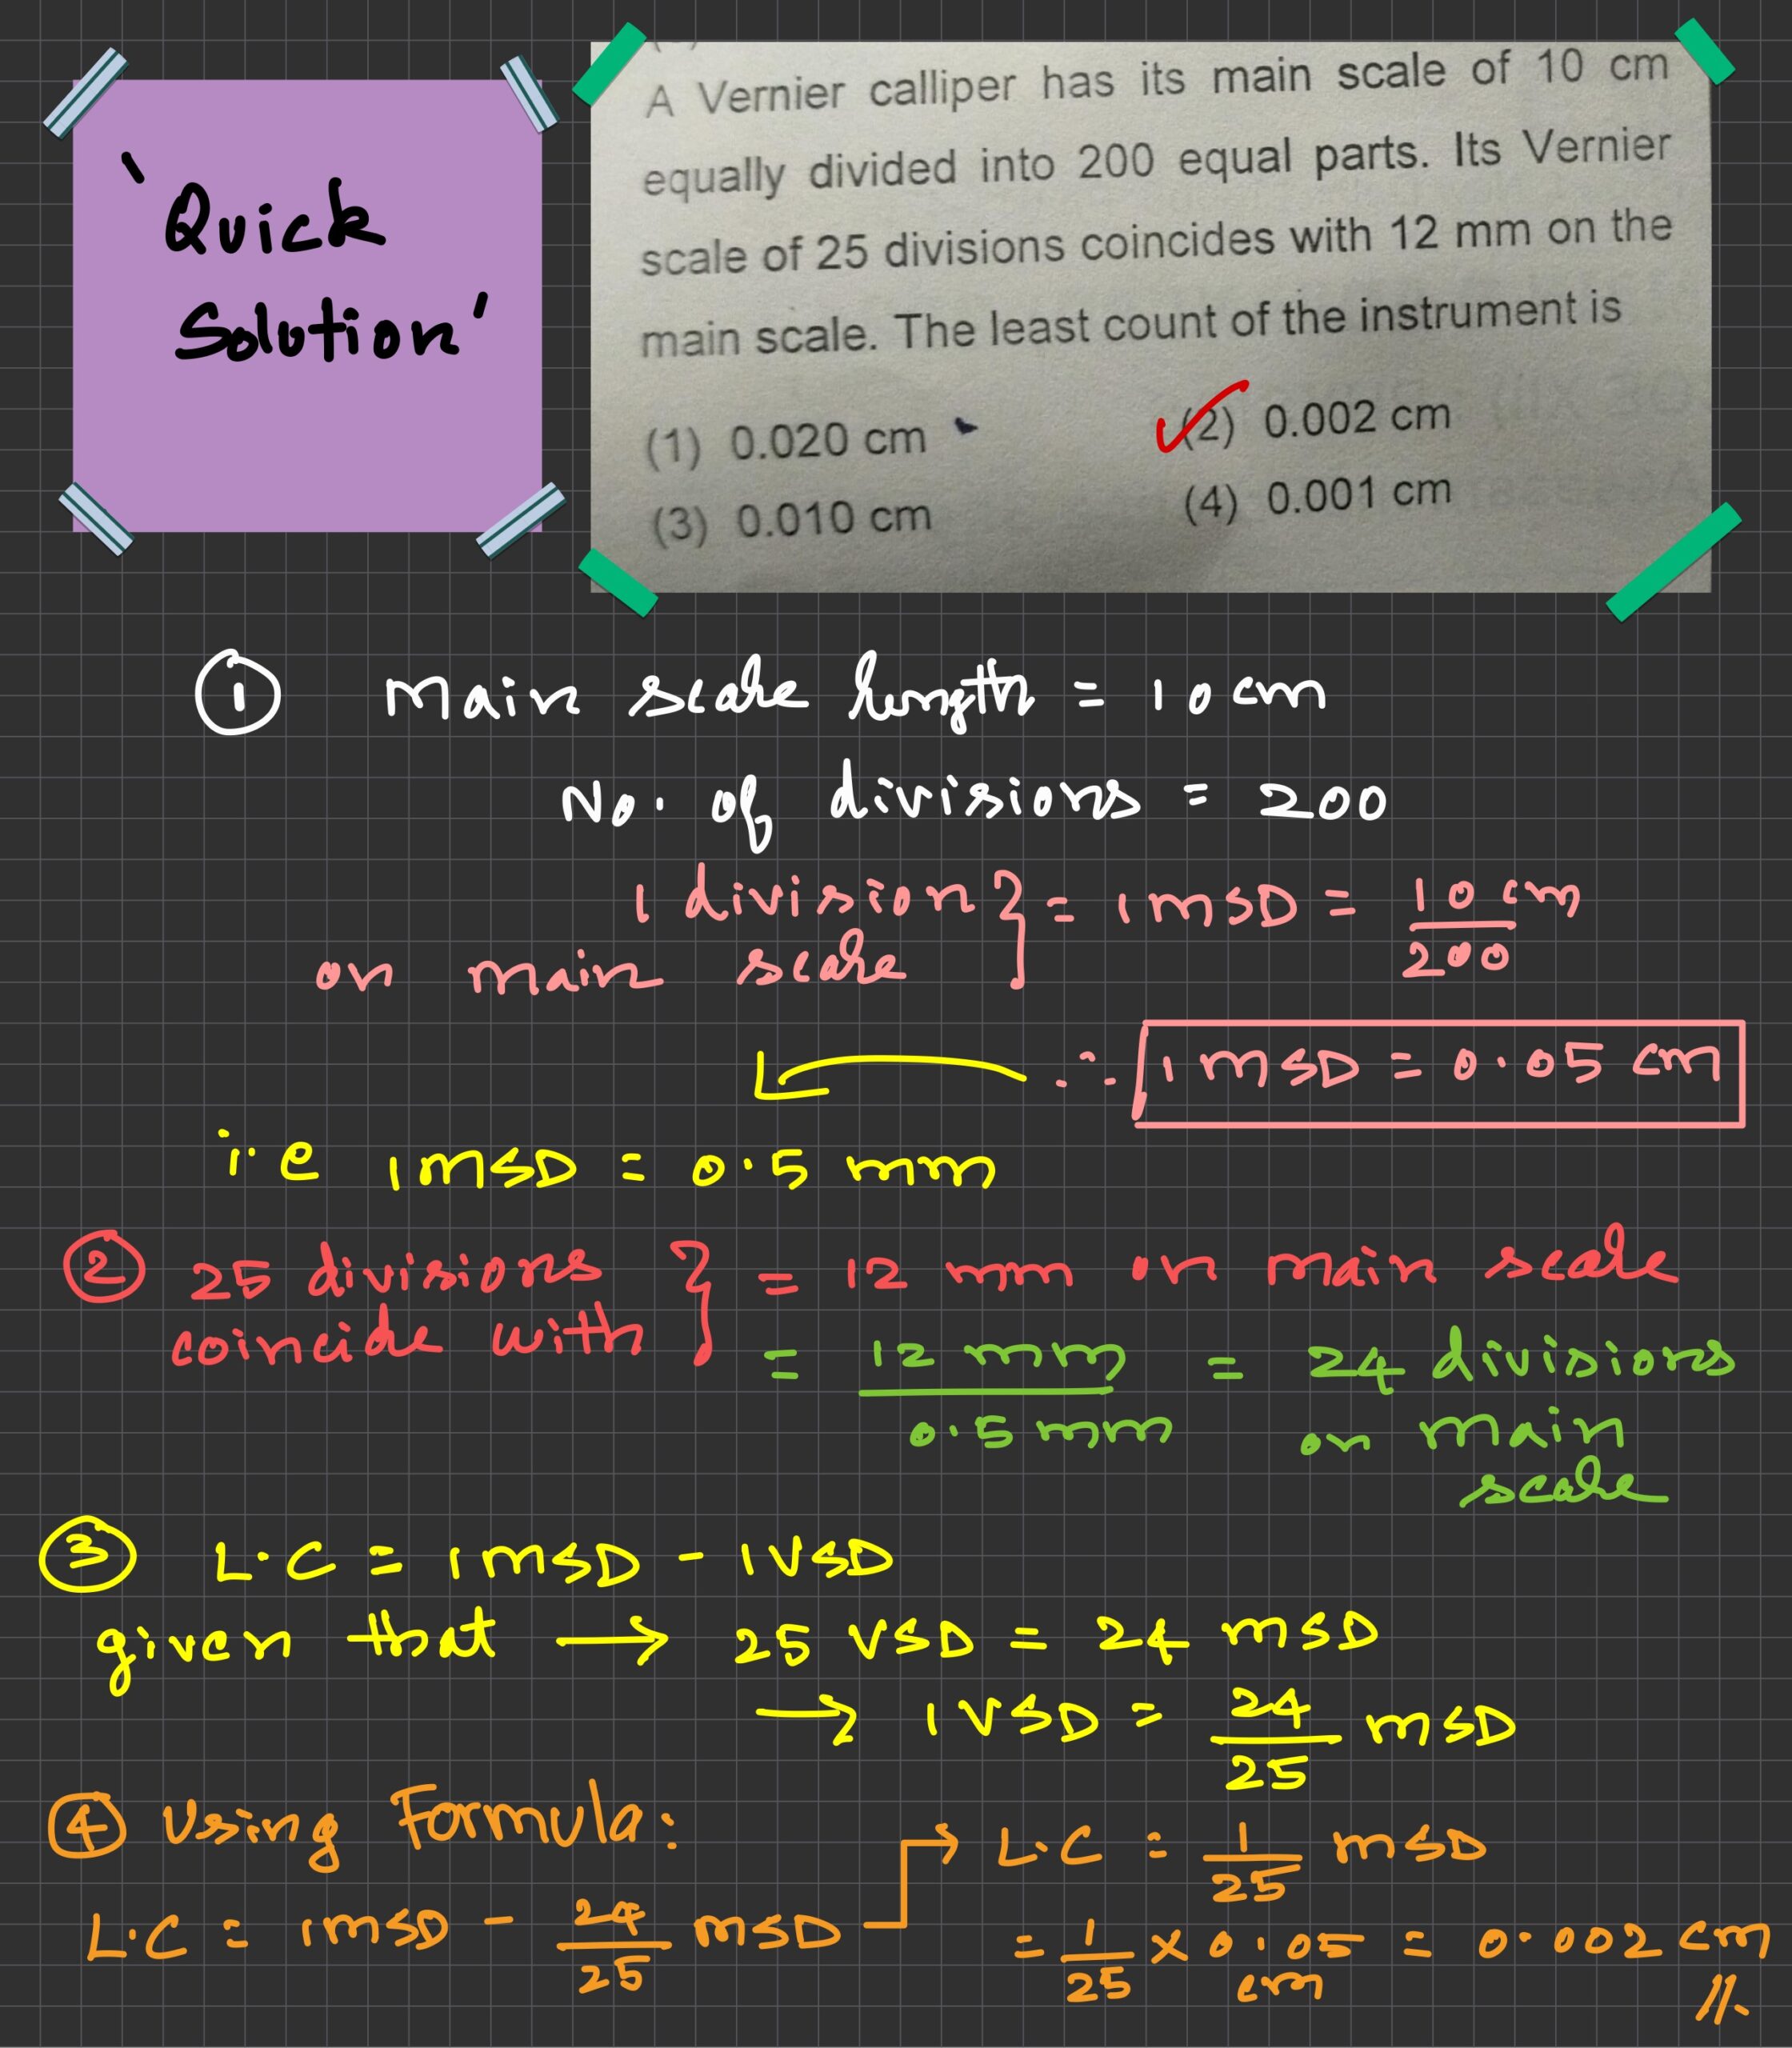 'Quick
Solution'
A Vernier calliper has its main scale of 10 cm
equally divided into 200 equal parts. Its Vernier
scale of 25 divisions coincides with 12 mm on the
main scale. The least count of the instrument is
(1) 0.020 cm (2) 0.002 cm
(3) 0.010 cm (4) 0.001 cm
① Main scale length = 10 cm
No. of divisions = 200
1 division
on main scale } = 1 MSD = 10 cm / 200
∴ 1 MSD = 0.05 cm
i.e 1 MSD = 0.5 mm
② 25 divisions
coincide with } = 12 mm on main scale
= 12 mm / 0.5 mm = 24 divisions
on main
scale
③ L.C = 1 MSD - 1 VSD
given that → 25 VSD = 24 MSD
→ 1 VSD = 24/25 MSD
④ Using Formula:
L.C = 1 MSD - 24/25 MSD
L.C = 1/25 MSD
= 1/25 × 0.05 cm = 0.002 cm //.